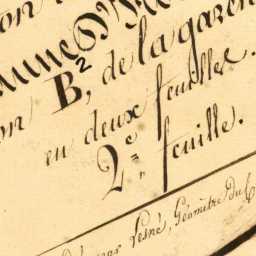 on
mune d'
on B², de la garen
en deux feuilles.
2e. feuille.
par Lesné, Géomètre du C